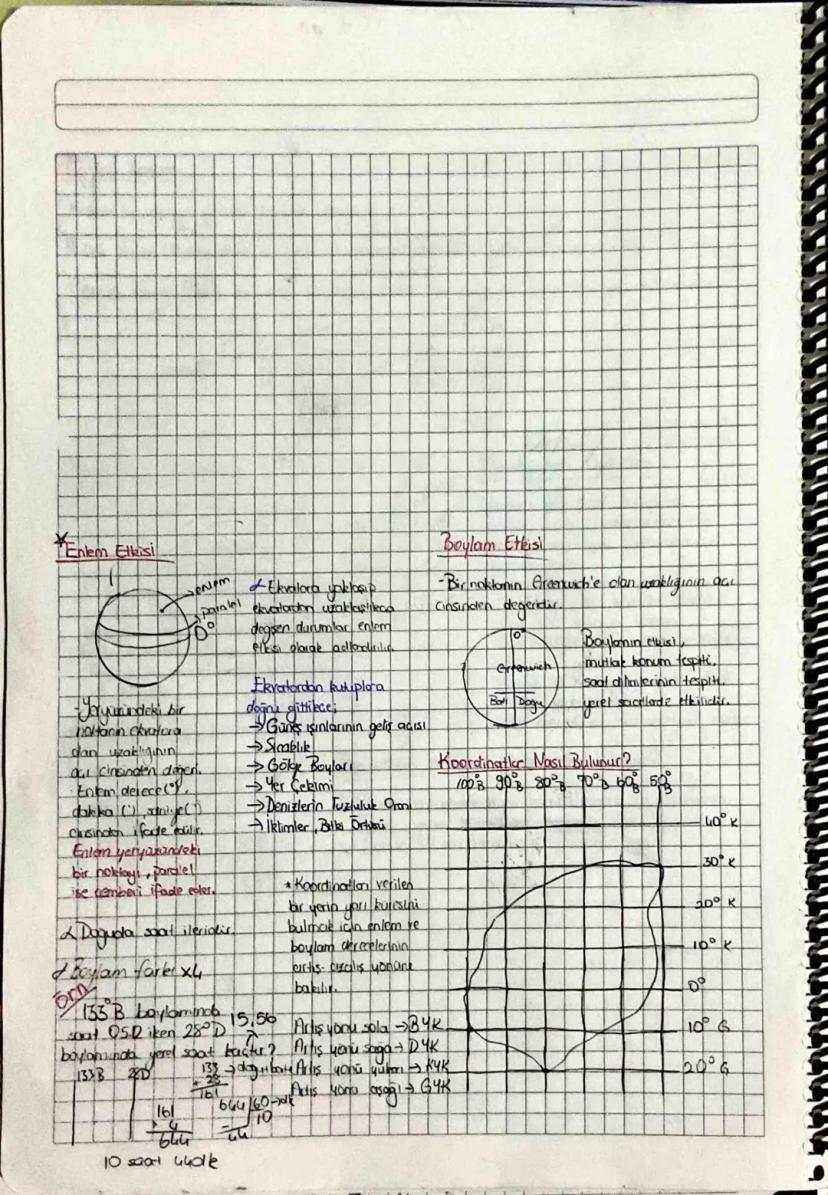 Enlem Etkisi
enlem
paralel
0°
∝ Ekvatora yaklaşıp
ekvatordan uzaklaştıkça
değişen durumlar enlem
etkisi olarak adlandırılır.
Ekvatordan kutuplara
doğru gittikçe;
→ Güneş ışınlarının geliş açısı
→ Sıcaklık
→ Gölge Boyları
→ Yer Çekimi
→ Denizlerin Tuzluluk Oranı
→ İklimler, Bitki Örtüsü
- Yeryüzündeki bir
noktanın ekvatora
olan uzaklığının
açı cinsinden değeri.
Enlem, derece (°),
dakika ('), saniye ('')
cinsinden ifade edilir.
Enlem yeryüzündeki
bir noktayı, paralel
ise çemberi ifade eder.
* Koordinatları verilen
bir yerin yarı küresini
bulmak için enlem ve
boylam derecelerinin
artış-azalış yönüne
bakılır.
Artış yönü sola → BYK
Artış yönü sağa → DYK
Artış yönü yukarı → KYK
Artış yönü aşağı → GYK
∝ Doğuda saat ileridir.
∝ Boylam farkı x4
Örn
133°B boylamında 15.56
saat 05.12 iken 28°D
boylamında yerel saat kaçtır?
133B 28D
133 → doğu batı
+ 28
161
161
x 4
644
644 60 → dk
10
44
10 saat 44dk
Boylam Etkisi
- Bir noktanın Greenwich'e olan uzaklığının açı
cinsinden değeridir.
0°
Greenwich
Batı Doğu
Boylamın etkisi,
mutlak konum tespiti,
saat dilimlerinin tespiti,
yerel saatlerde etkilidir.
Koordinatlar Nasıl Bulunur?
100°B 90°B 80°B 70°B 60°B 50°B
40° K
30° K
20° K
10° K
0°
10° G
20° G